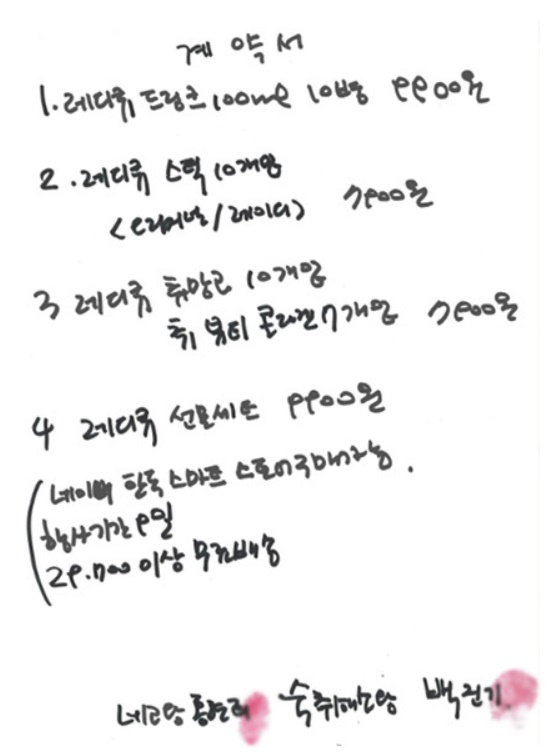 계 약 서
1. 레디큐 드링크 100ml 10병 9900원
2. 레디큐 스틱 10개입
<오리지널/레이디> 7900원
3 레디큐 츄 망고 10개입
츄 뷰티 콜라겐 7개입 7900원
4 레디큐 선물세트 9900원
네이버 한독 스마트 스토어 구매가능.
행사기간 9일
29.700 이상 무료배송
네고왕 황광희 숙취해소왕 백진기